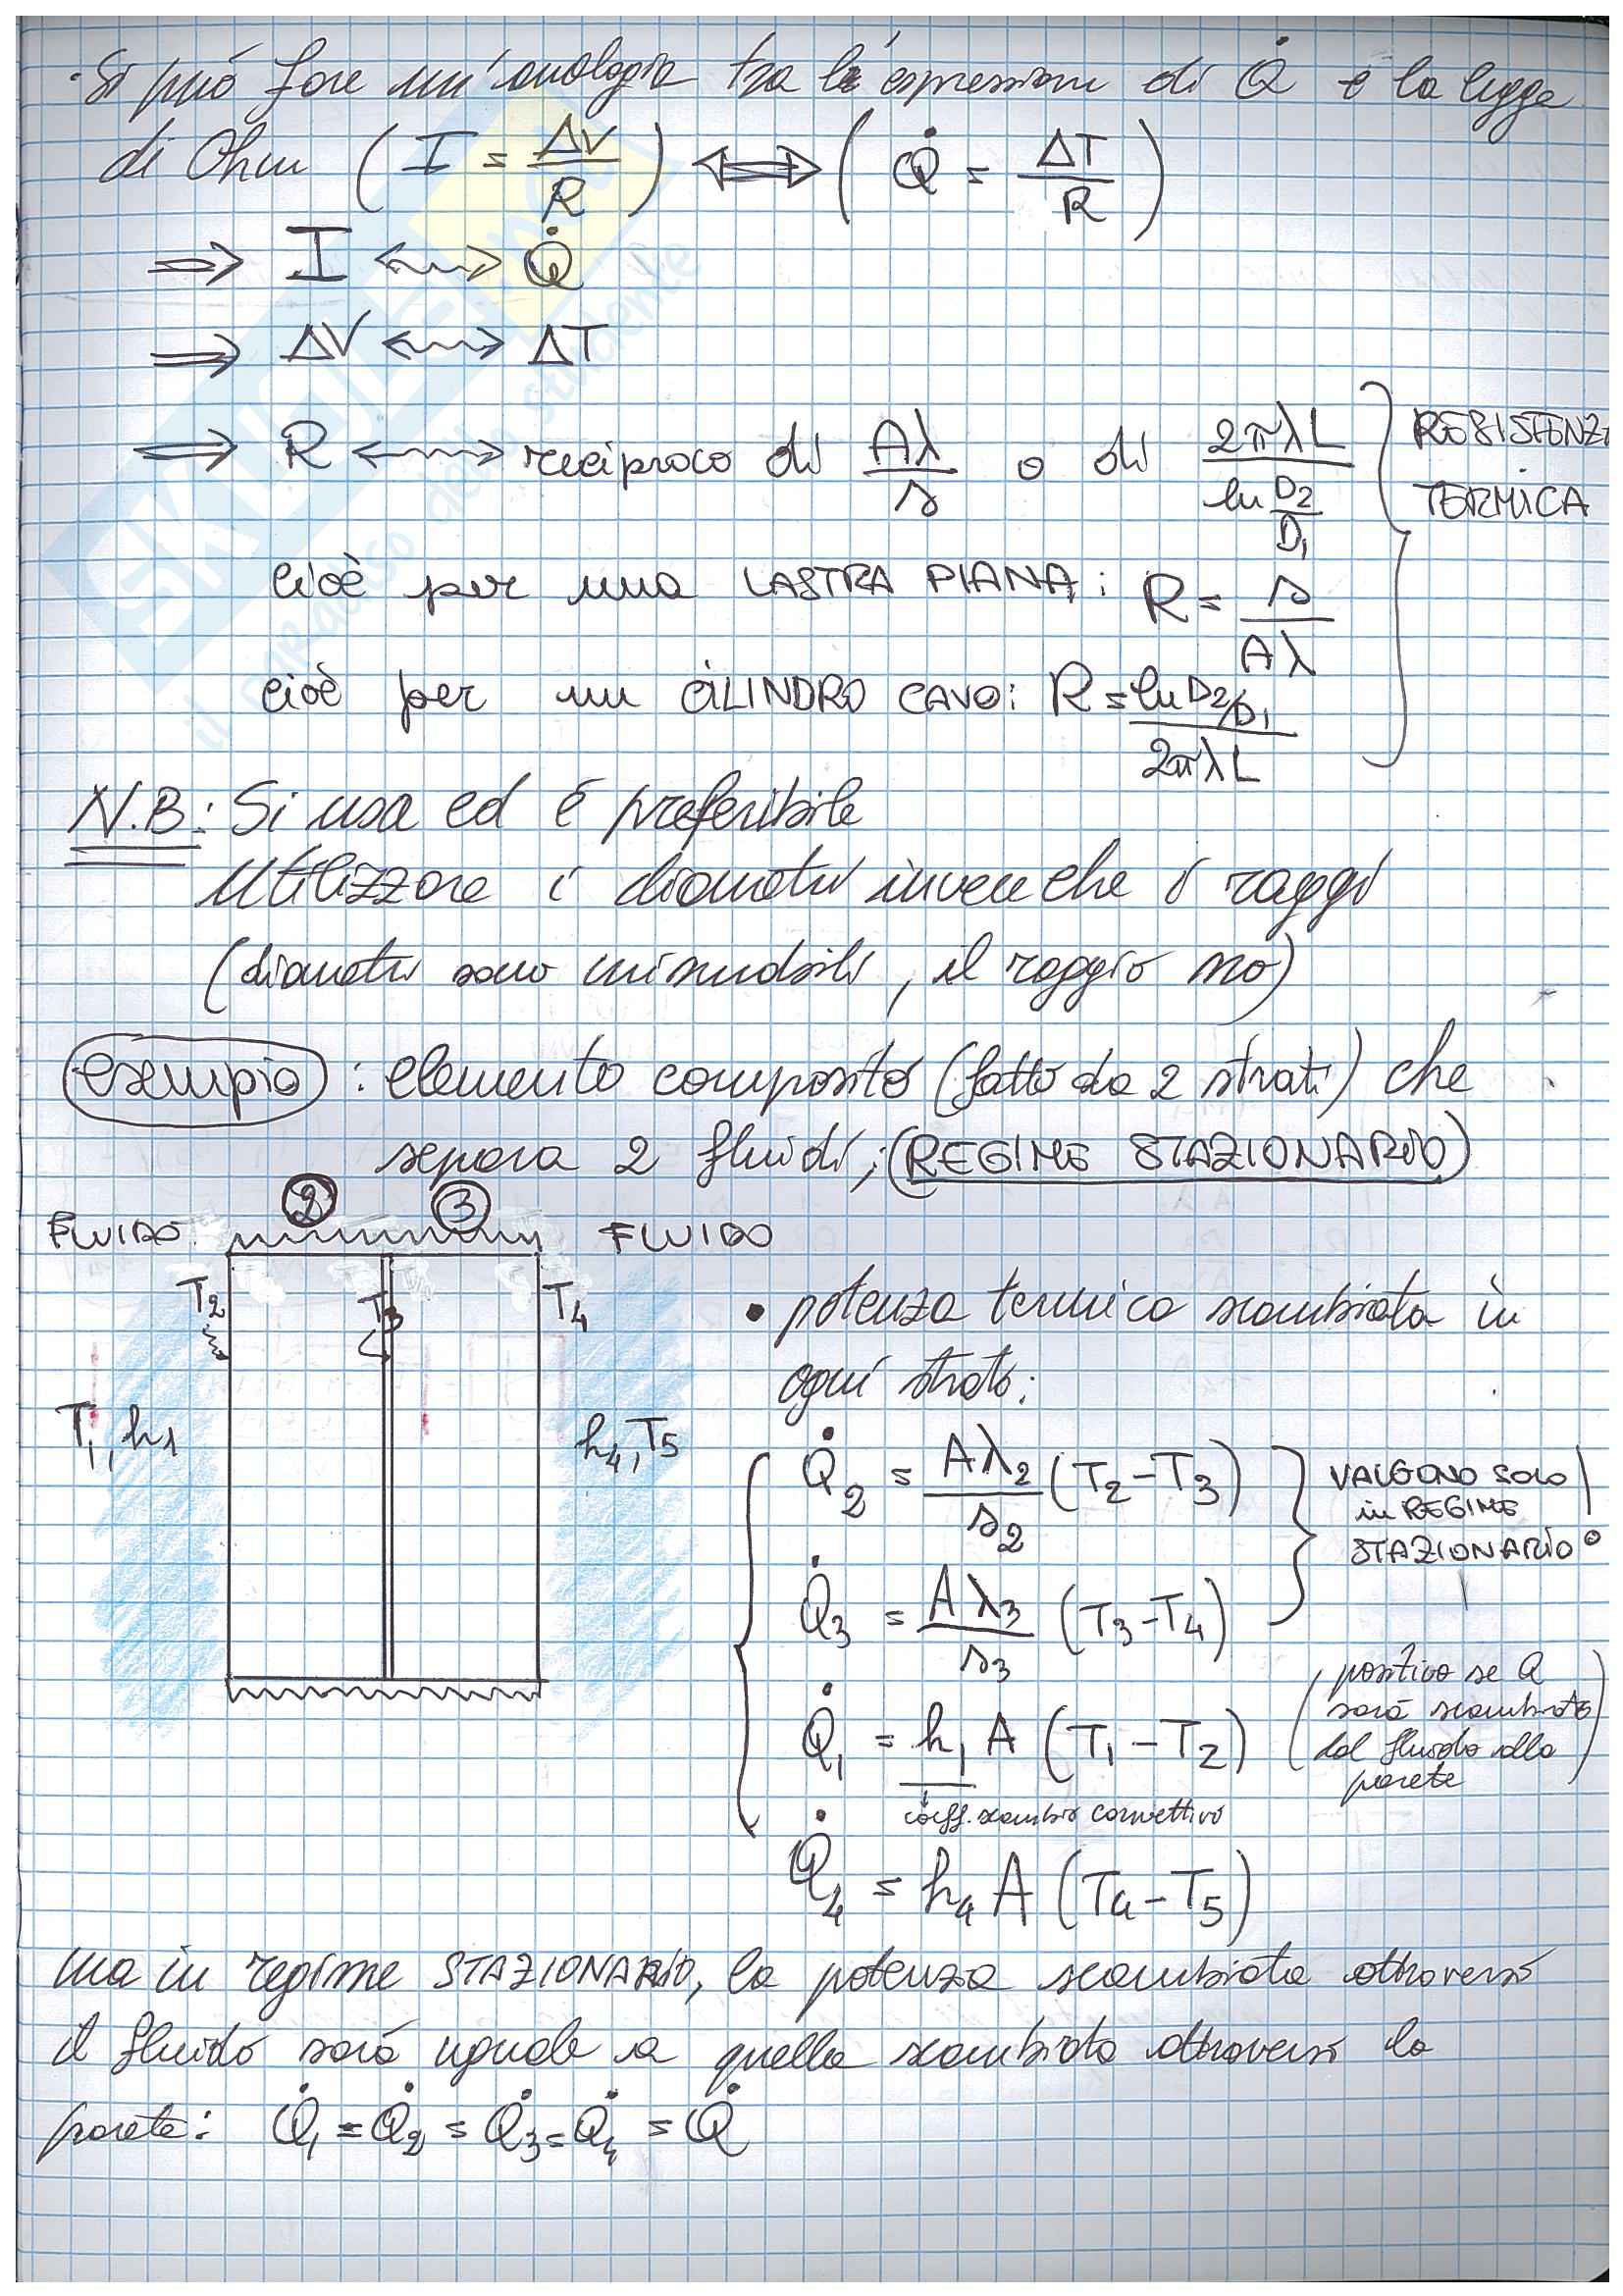 · Si può fare un'analogia tra le espressioni di Q̇ e la legge
di Ohm ( I = ΔV/R ) ⟺ ( Q̇ = ΔT/R )
⇒ I <~~> Q̇
⇒ ΔV <~~> ΔT
⇒ R <~~> reciproco di Aλ/s o di 2πλL / ln D2/D1 } RESISTENZA
TERMICA
cioè per una LASTRA PIANA: R = s/Aλ
cioè per un CILINDRO CAVO: R = ln D2/D1 / 2πλL
N.B.: Si usa ed è preferibile
utilizzare i diametri invece che i raggi
(diametri sono misurabili, il raggio no)
esempio : elemento composito (fatto da 2 strati) che
separa 2 fluidi, (REGIME STAZIONARIO)
2 3
FLUIDO FLUIDO
T2 T3 T4
T1, h1 h4, T5
• potenza termica scambiata in
ogni strato:
Q̇2 = Aλ2/s2 (T2-T3)
Q̇3 = Aλ3/s3 (T3-T4)
} VALGONO SOLO
in REGIME
STAZIONARIO
Q̇1 = h1 A (T1-T2)
(positivo se Q
sarà scambiato
dal fluido alla
parete)
coeff. scambio convettivo
Q̇4 = h4 A (T4-T5)
ma in regime STAZIONARIO, la potenza scambiata attraverso
il fluido sarà uguale a quella scambiata attraverso la
parete: Q̇1 = Q̇2 = Q̇3 = Q̇4 = Q̇
SKUOLA.net
il paradiso dello studente